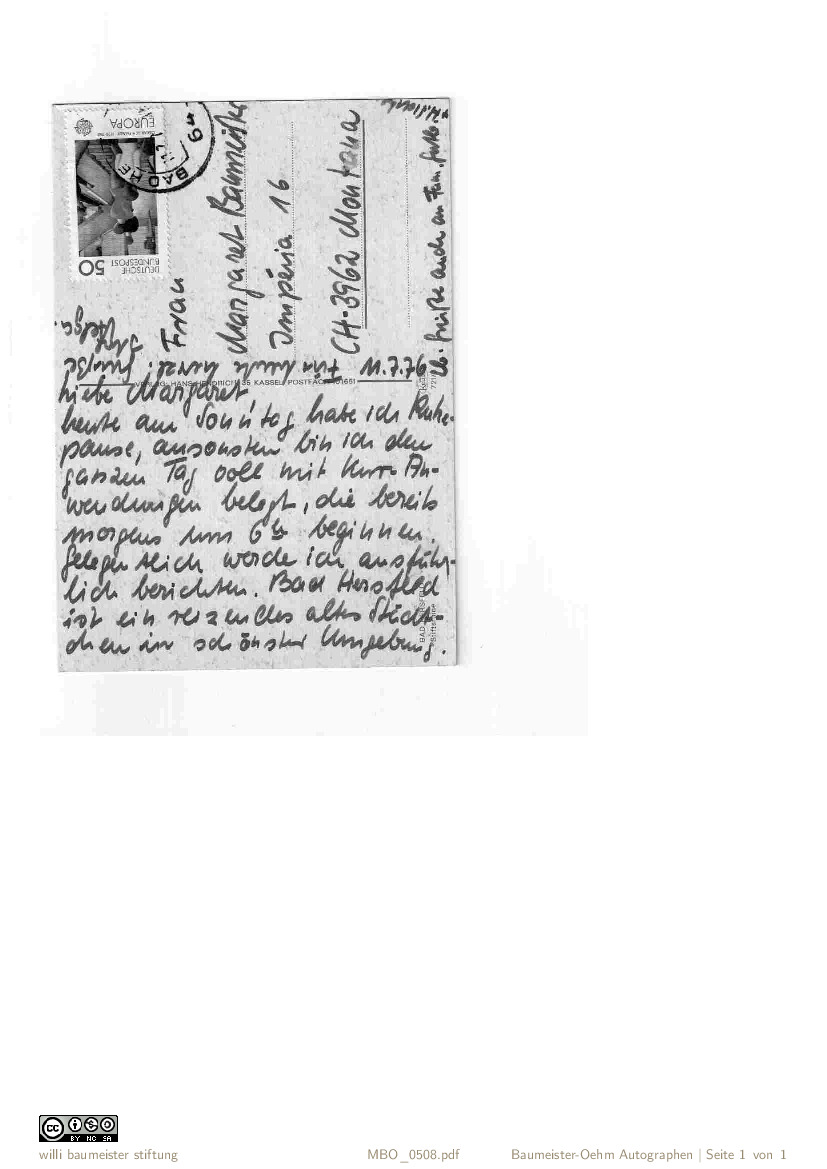 DEUTSCHE
BUNDESPOST
50
EUROPA
BAD HE
64
Frau
Margaret Baumeister
Impéria 16
CH-3962 Montana
lb. Grüße auch an Fam.
VERLAG: HANS HENDRICH, 35 KASSEL, POSTFACH
11.7.76
Liebe Margaret,
heute am Sonntag habe ich Ruhe-
pause, ansonsten bin ich den
ganzen Tag voll mit Kur-An-
wendungen belegt, die bereits
morgens um 6 h beginnen.
Gelegentlich werde ich ausführ-
lich berichten. Bad Hersfeld
ist ein reizendes altes Städt-
chen in schönster Umgebung.
Für heute herzl. Grüße
Helga.
willi baumeister stiftung
MBO_0508.pdf
Baumeister-Oehm Autographen | Seite 1 von 1
CC BY NC SA